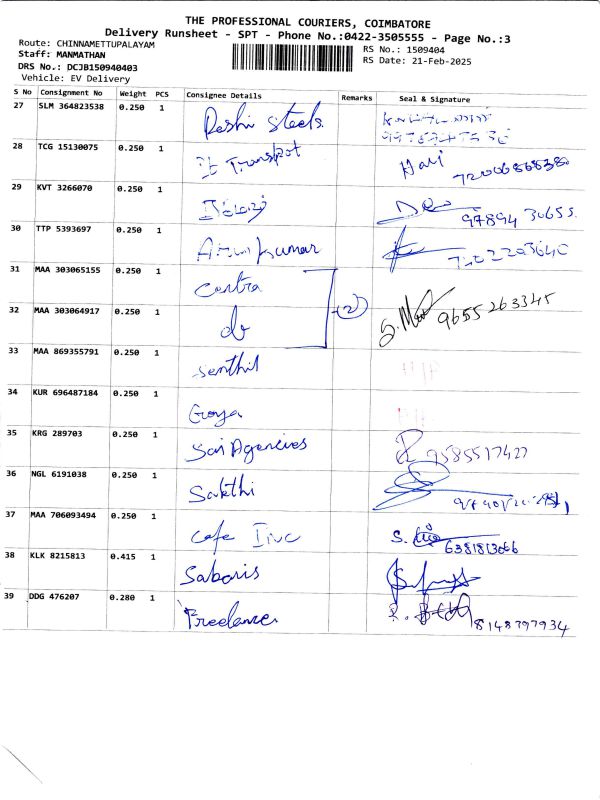 THE PROFESSIONAL COURIERS, COIMBATORE
Delivery Runsheet - SPT - Phone No.:0422-3505555 - Page No.:3
Route: CHINNAMETTUPALAYAM
RS No.: 1509404
Staff: MANMATHAN
RS Date: 21-Feb-2025
DRS No.: DCJB150940403
Vehicle: EV Delivery
S No Consignment No Weight PCS Consignee Details Remarks Seal & Signature
27 SLM 364823538 0.250 1 Reshi Steels
28 TCG 15130075 0.250 1 Transpot Hari
29 KVT 3266070 0.250 1
30 TTP 5393697 0.250 1 Arun Kumar
31 MAA 303065155 0.250 1 Contra
32 MAA 303064917 0.250 1 do (2) 9655263345
33 MAA 869355791 0.250 1 Senthil
34 KUR 696487184 0.250 1 Goya
35 KRG 289703 0.250 1 Sai Agencies 9585517427
36 NGL 6191038 0.250 1 Sakthi
37 MAA 706093494 0.250 1 Cafe Inc S.
38 KLK 8215813 0.415 1 Sabaris
39 DDG 476207 0.280 1 Freelance 8148797934